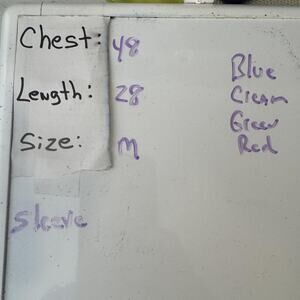 Chest: 48
Length: 28
Size: M
Sleeve
Blue
Cream
Green
Red